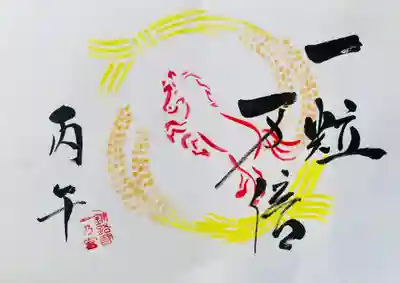 一粒
万倍
丙午